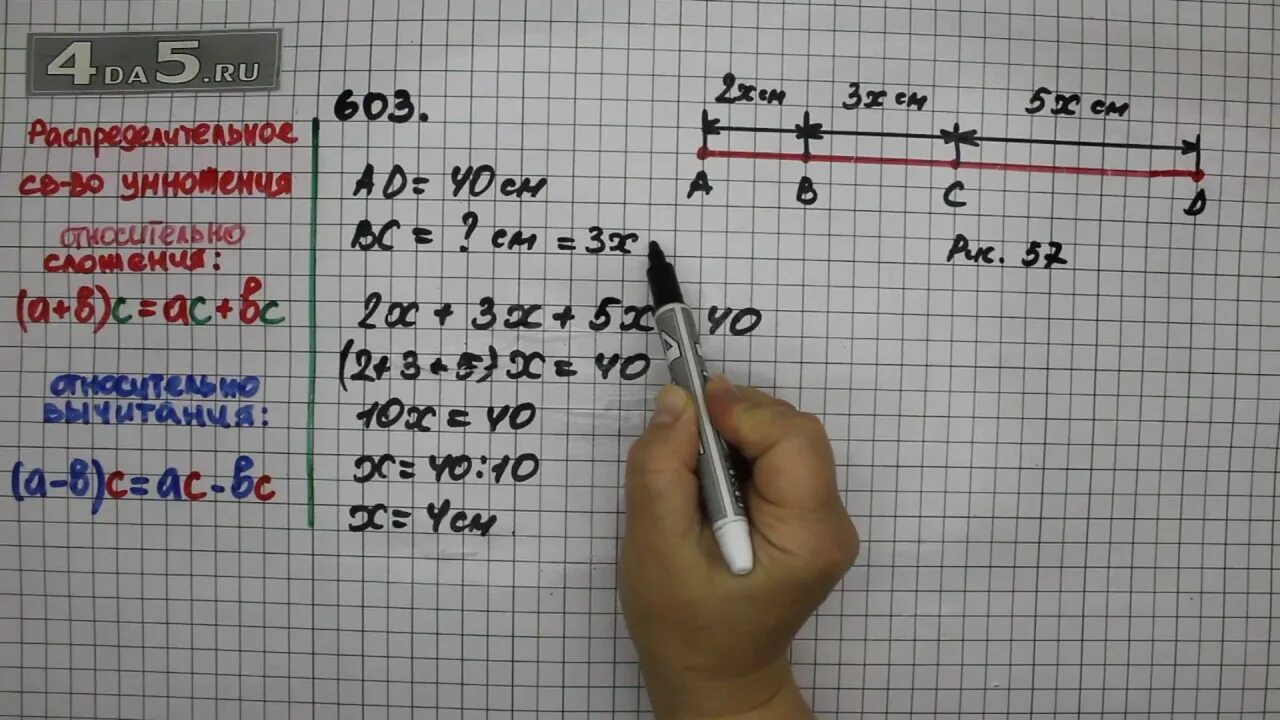 4DA5.RU
Распределительное
св-во умножения
относительно
сложения:
(а+в)с=ас+вс
относительно
вычитания:
(а-в)с=ас-вс
603.
AD= 40см
BC = ? см = 3х
2х + 3х + 5х 40
(2+3+5)х = 40
10х = 40
х= 40:10
х= 4см
2х см 3х см 5х см
A B C D
Рис. 57